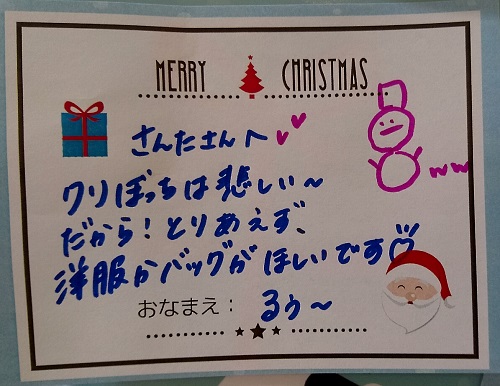 MERRY CHRISTMAS
さんたさんへ
クリぼっちは悲しい〜
だから！とりあえず、
洋服かバッグがほしいです
おなまえ： るぅ〜
ww